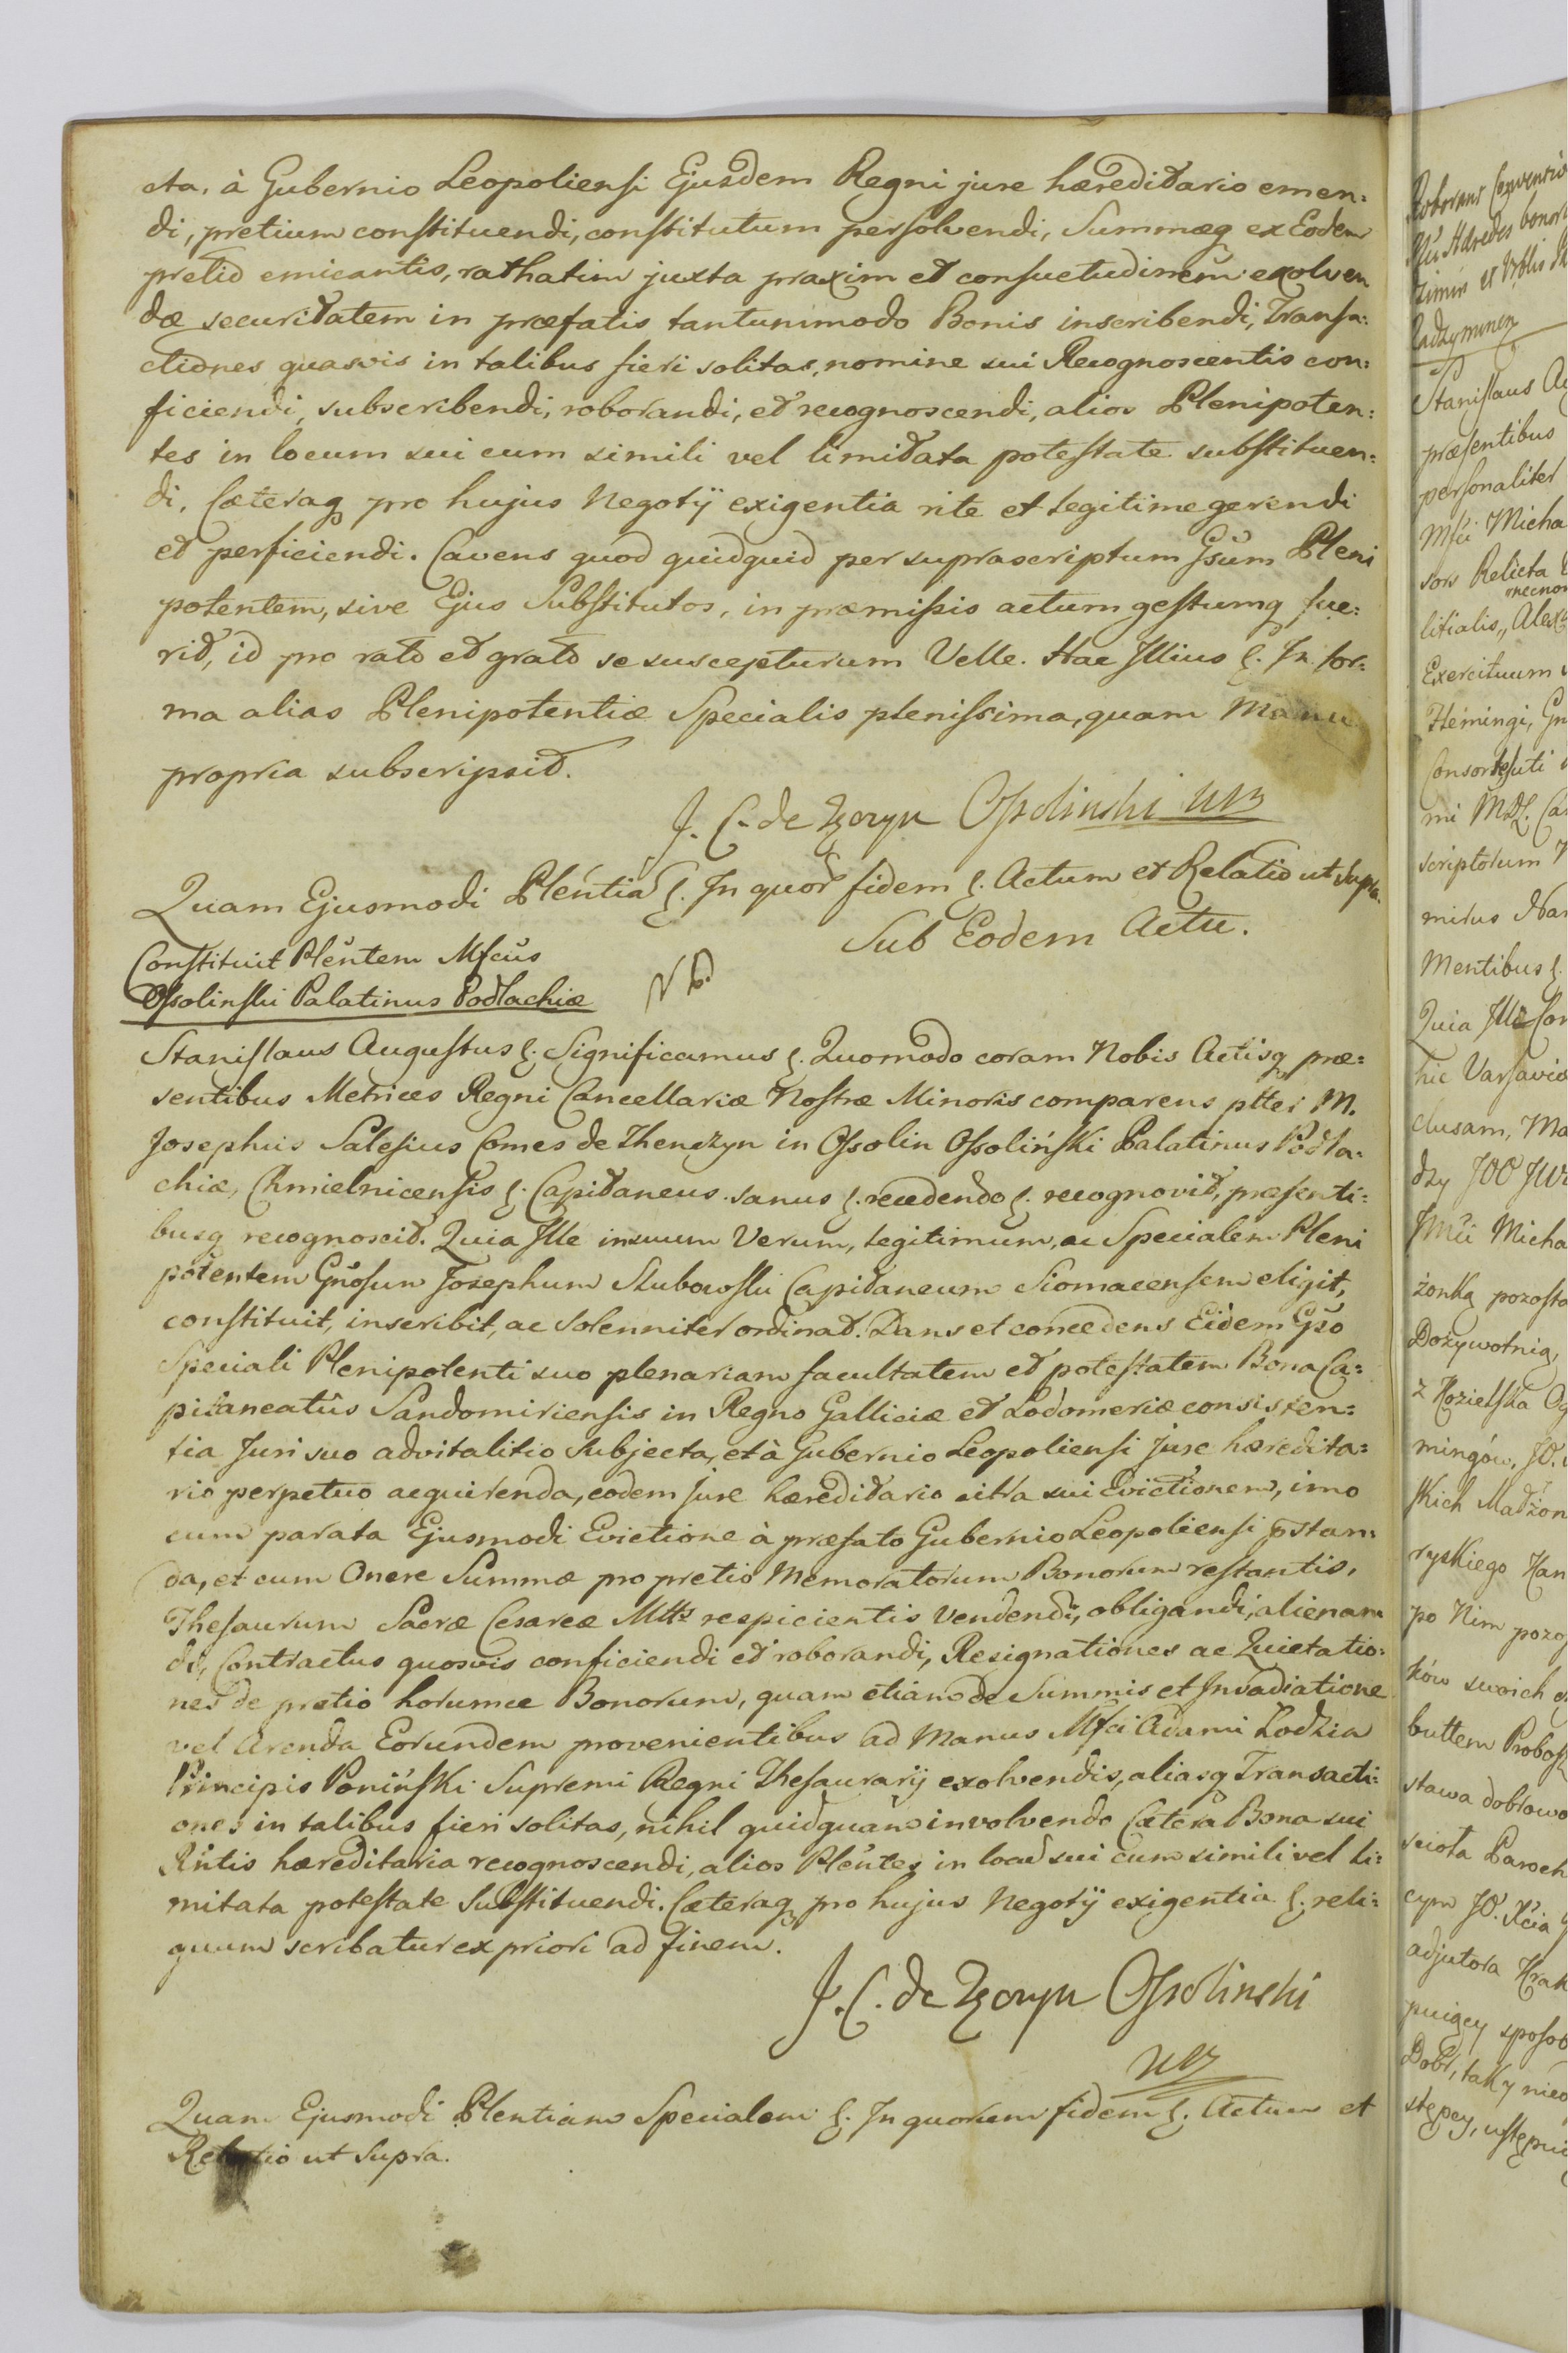 cta, à Gubernio Leopoliensi Ejusdem Regni jure hæreditario emen:
di, pretium constituendi, constitutum persolvendi, Summæq ex Eodem
pretio emicantis, rathatim juxta praxim et consuetudinem exolven
dæ securitatem in præfatis tantummodo Bonis inscribendi, Transa:
ctiones quasvis in talibus fieri solitas, nomine sui Recognoscentis con:
ficiendi, subscribendi, roborandi, et recognoscendi, alios Plenipoten:
tes in locum sui cum simili vel limitata potestate substituen:
di, Cæteraq pro hujus Negotij exigentia rite et legitime gerendi
et perficiendi. Cavens quod quidquid per suprascriptum Gsum Pleni
potentem, sive Ejus Substitutos, in præmissis actum gestumq fue:
rit, id pro rato et grato se suscepturum Velle. Hac Illius &. In for:
ma alias Plenipotentiæ Specialis plenissima, quam Manu
propria subscripsit.
J. C. de Tęczyn Ossolinski WP
Quam Ejusmodi Plentia &. In quor fidem &. Actum et Relatio ut supra.
Sub Eodem Actu.
Constituit Plentem Mfcus
Ossolinski Palatinus Podlachiæ
Stanislaus Augustus &. Significamus &. Quomodo coram Nobis Actisq præ:
sentibus Metrices Regni Cancellariæ Nostræ Minoris comparens ptter M.
Josephus Salesius Comes de Thenczyn in Ossolin Ossoliński Palatinus Podla:
chiæ, Chmielnicensis &. Capitaneus sanus &. recedendo &. recognovit, præsenti:
busq recognoscit. Quia Ille in suum Verum, legitimum, ac Specialem Pleni
potentem Gnosum Josephum Skubowski Capitaneum Siomacensem eligit,
constituit, inscribit, ac Solenniter ordinat. Dans et concedens Eidem Gso
Speciali Plenipotenti suo plenariam facultatem et potestatem Bona Ca:
pitaneatûs Sandomiriensis in Regno Galliciæ et Lodomeriæ consisten:
tia Juri suo advitalitio Subjecta, et à Gubernio Leopoliensi Jure hæredita:
rio perpetuo acquirenda, eodem Jure hæreditario citra sui Evictionem, imo
cum parata Ejusmodi Evictione à præfato Gubernio Leopoliensi pstan:
da, et cum Onere Summæ pro pretio Memoratorum Bonorum restantis,
Thesaurum Sacræ Cesareæ Mttis respicientis vendendi, obligandi, alienan
di, Contractus quosvis conficiendi et roborandi, Resignationes ac Quietatio:
nes de pretio horumce Bonorum, quam etiam de Summis et Invadiatione
vel Arenda Eorundem provenientibus ad Manus Mfci Adami Łodzia
Principis Poniński Supremi Regni Thesaurarij exolvendis, aliasq Transacti:
ones in talibus fieri solitas, nihil quidquam involvendo Cætera Bona sui
Rntis hæreditaria recognoscendi, alios Plentes in locum sui cum simili vel li:
mitata potestate Substituendi. Cæteraq pro hujus Negotij exigentia &. reli:
quum scribatur ex priori ad finem.
J. C. de Tęczyn Ossolinski
WP
Quam Ejusmodi Plentiam Specialem &. In quorum fidem &. Actum et
Relatio ut Supra.
Stanislaus
præsentibus
personaliter
Micha
sors Relicta
necnon
litialis,
Exercituum
Hemingi,
scriptorum
Mentibus &.
hic Varsaviæ
clusam,
dzy JOO
Micha
żonką
Dożywotnią,
z Kozielska
mingów, JO.
skich
ryskiego
po Nim
ków swoich
buttem
adjutora